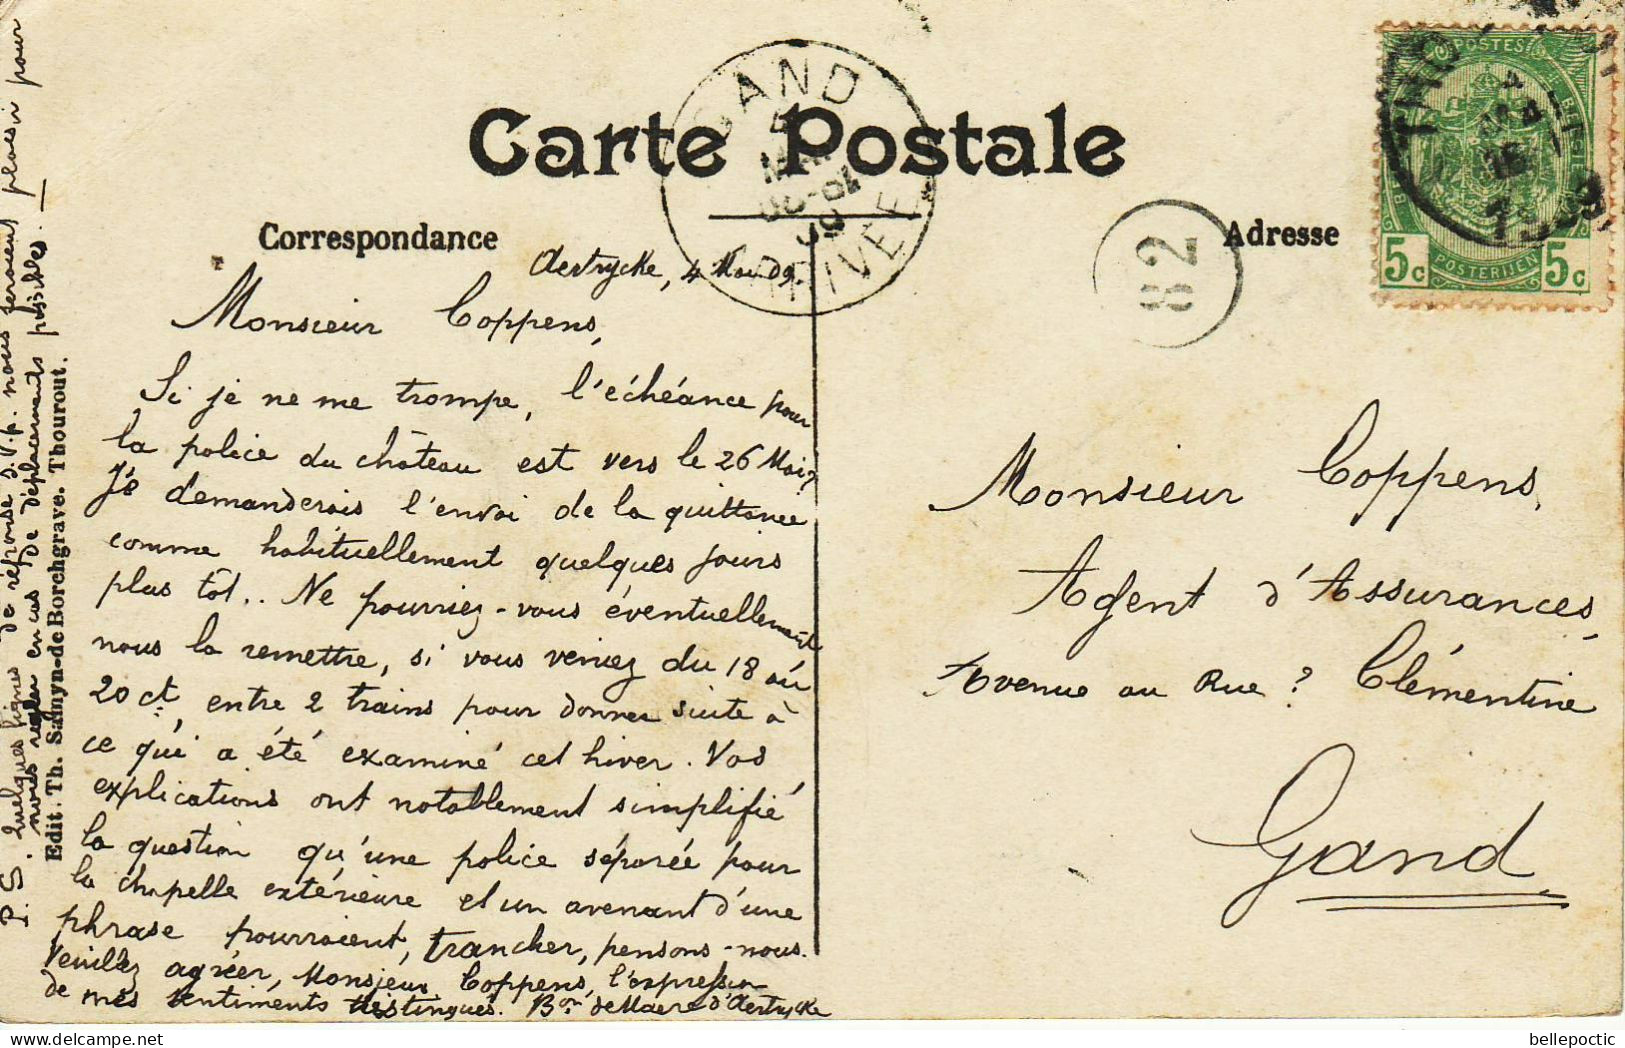 Carte Postale
Correspondance
Adresse
GAND
ARRIVEE
82
POSTES
5c POSTERIJEN 5c
1909
Aertrycke, 4 Mai 09.
Monsieur Coppens,
Si je ne me trompe, l'échéance pour
la police du château est vers le 26 Mai?
Je demanderais l'envoi de la quittance
comme habituellement quelques jours
plus tôt.. Ne pourriez-vous éventuellement
nous la remettre, si vous veniez du 18 au
20 ct, entre 2 trains pour donner suite à
ce qui a été examiné cet hiver. Vos
explications ont notablement simplifié
la question qu'une police séparée pour
la chapelle extérieure et un avenant d'une
phrase pourraient, trancher, pensons-nous.
Veuillez agréer, Monsieur Coppens, l'expression
de mes sentiments distingués. Bon de Maere d'Aertrycke
P.S. Quelques lignes de réponse S.V.p. nous feraient plaisir pour
nous régler en cas de déplacements possibles.
Edit. Th. Samyn-de Borchgrave. Thourout.
Monsieur Coppens,
Agent d'Assurances,
Avenue ou Rue? Clémentine
Gand
bellepoctic